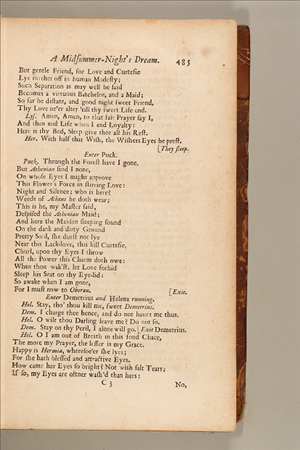 A Midsummer-Night's Dream. 485
But gentle Friend, for Love and Curtesie
Lye further off in human Modesty;
Such Separation as may well be said
Becomes a virtuous Batchelor, and a Maid;
So far be distant, and good night sweet Friend,
Thy Love ne'er alter 'till thy sweet Life end.
Lys. Amen, Amen, to that fair Prayer say I,
And then end Life when I end Loyalty:
Here is thy Bed, Sleep give thee all his Rest.
Her. With half that Wish, the Wishers Eyes be prest.
[They sleep.
Enter Puck.
Puck. Through the Forest have I gone,
But Athenian find I none,
On whose Eyes I might approve
This Flower's Force in stirring Love:
Night and Silence; who is here?
Weeds of Athens he doth wear;
This is he, my Master said,
Despised the Athenian Maid;
And here the Maiden sleeping sound
On the dank and dirty Ground
Pretty Soul, she durst not lye
Near this Lack-love, this kill Curtesie.
Churl, upon thy Eyes I throw
All the Power this Charm doth owe:
When thou wak'st, let Love forbid
Sleep his Seat on thy Eye-lid:
So awake when I am gone,
For I must now to Oberon. [Exit.
Enter Demetrius and Helena running.
Hel. Stay, tho' thou kill me, sweet Demetrius.
Dem. I charge thee hence, and do not haunt me thus.
Hel. O wilt thou Darling leave me? Do not so.
Dem. Stay on thy Peril, I alone will go. [Exit Demetrius.
Hel. O I am out of Breath in this fond Chace,
The more my Prayer, the lesser is my Grace.
Happy is Hermia, wheresoe'er she lyes;
For she hath blessed and attractive Eyes.
How came her Eyes so bright? Not with salt Tears;
If so, my Eyes are oftner wash'd than hers:
C 3 No,